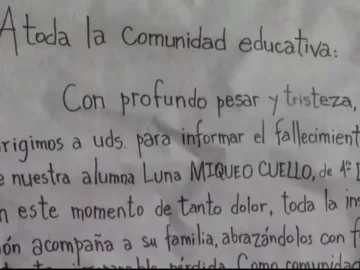 A toda la Comunidad educativa:
Con profundo pesar y tristeza,
rigimos a uds. para informar el fallecimient
e nuestra alumna Luna MIQUEO CUELLO, de 1º
n este momento de tanto dolor, toda la in
ón acompaña a su familia, abrazándolos con f
pérdida. Como comunidad